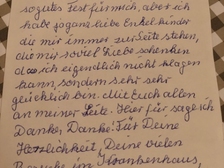 so gutes Fest für mich, aber ich
habe so ganz liebe Enkelkinder
die mir immer zur Seite stehen,
die mir soviel Liebe schenken
das ich eigentlich nicht klagen
kann, sondern sehr sehr
glücklich bin. Mit Euch allen
an meiner Seite. Hier für sage ich
Danke, Danke! Für Deine
Herzlichkeit, Deine vielen
Besuche im Krankenhaus,